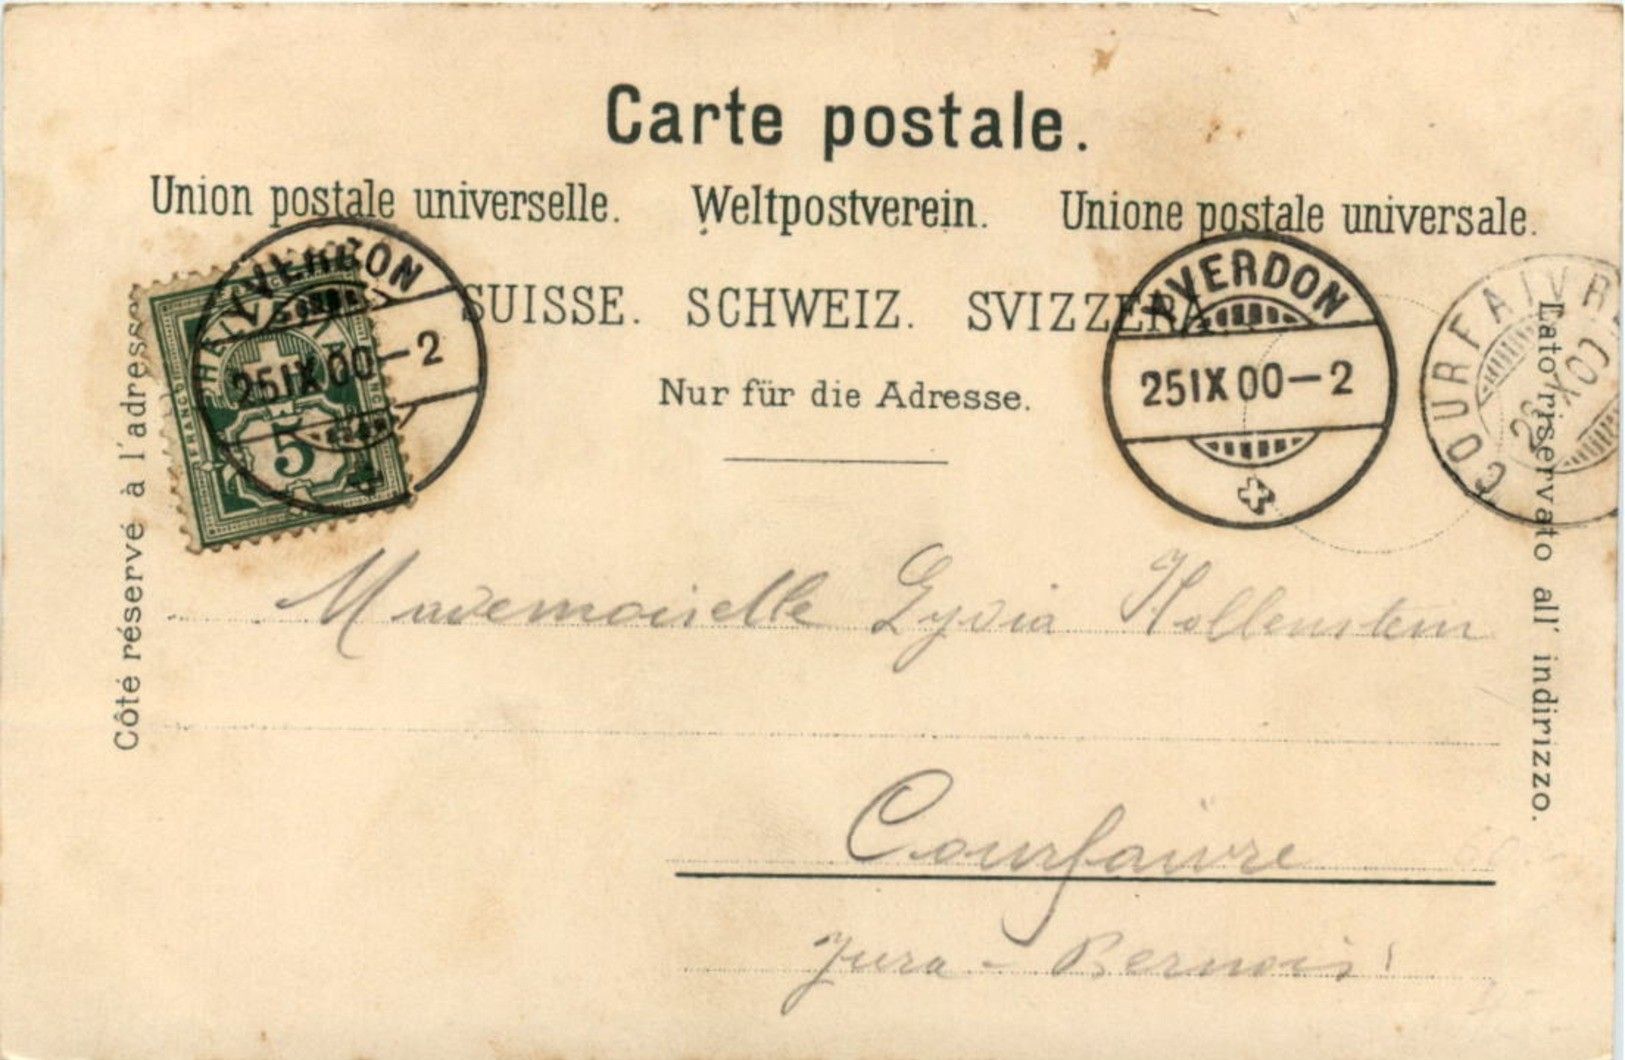 Carte postale.
Union postale universelle. Weltpostverein. Unione postale universale.
SUISSE. SCHWEIZ. SVIZZERA
Nur für die Adresse.
Côté réservé à l'adresse
FRANCO
5
YVERDON
25 IX 00-2
YVERDON
25 IX 00-2
COURFAIVRE
IX 00
Lato riservato all' indirizzo.
Mademoiselle Lydia Hollenstein
Courfaivre
Jura-Bernois!